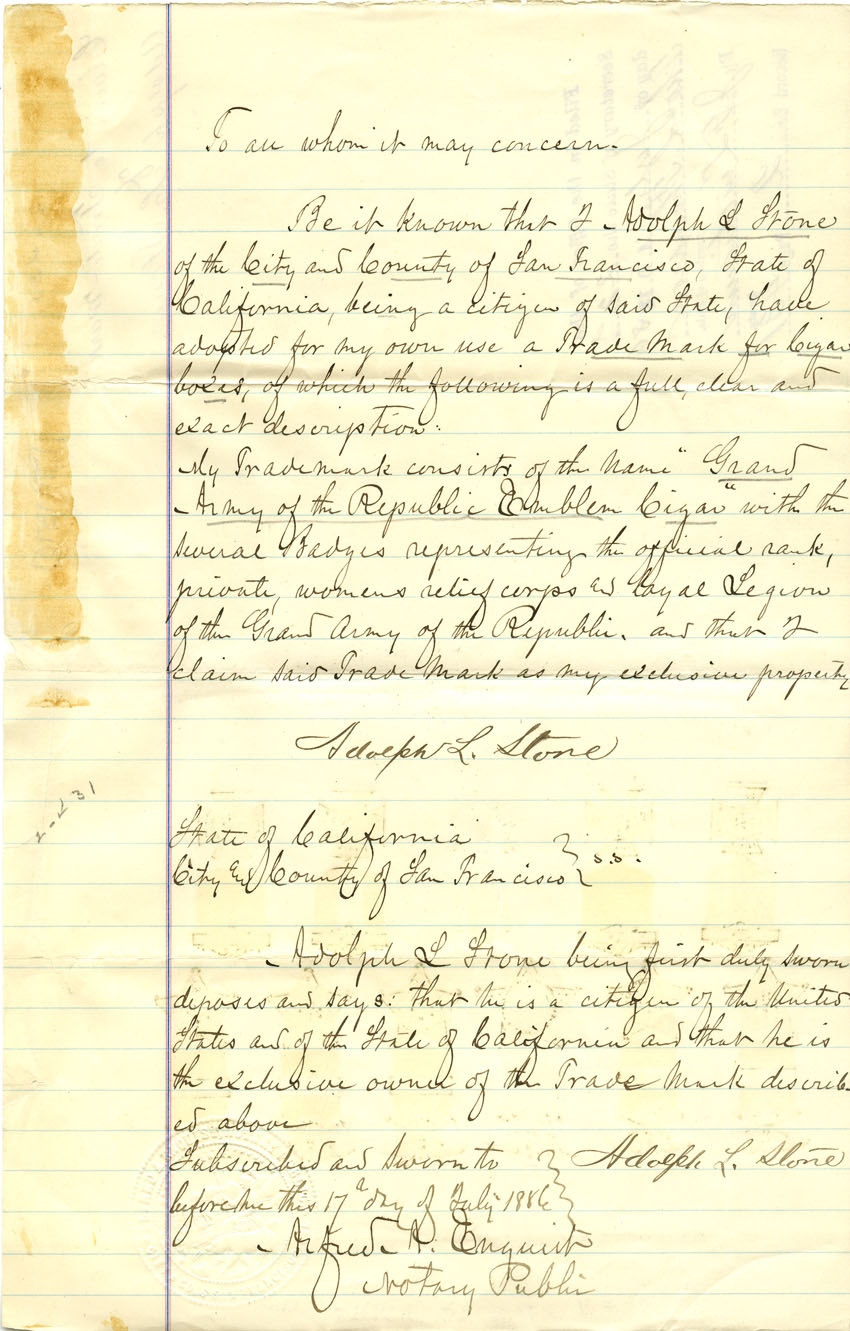 To all whom it may concern.
Be it known that I Adolph L Stone
of the City and County of San Francisco, State of
California, being a citizen of said State, have
adopted for my own use a Trade Mark for Cigar
boxes, of which the following is a full, clear and
exact description:
My Trademark consists of the name "Grand
Army of the Republic Emblem Cigar" with the
several Badges representing the official rank,
private, womens relief corps and loyal Legion
of the Grand Army of the Republic. and that I
claim said Trade Mark as my exclusive property
Adolph L. Stone
State of California
City and County of San Francisco } s.s.
Adolph L Stone being first duly sworn
deposes and says: that he is a citizen of the United
States and of the State of California and that he is
the exclusive owner of the Trade Mark describ-
ed above
Subscribed and sworn to } Adolph L. Stone
before me this 17th day of July 1886
Alfred A. Enquist
Notary Public